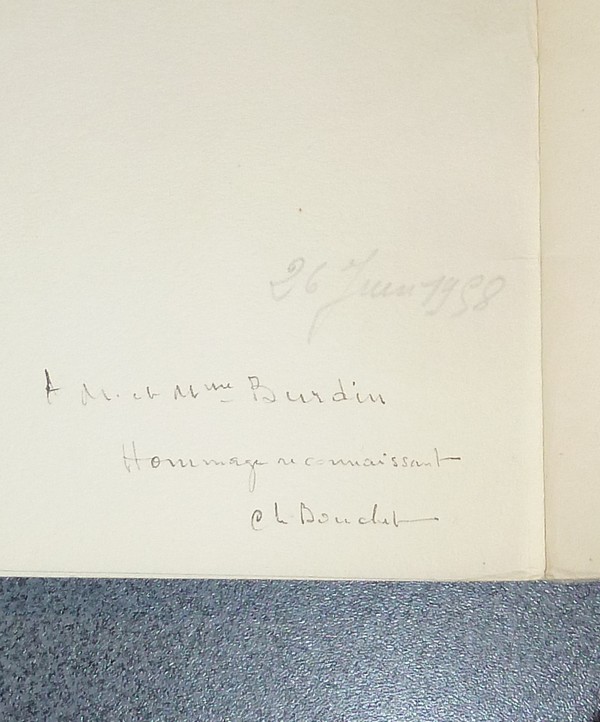 26 Juin 1958
A M. et Mme Burdin
Hommage reconnaissant
Ch Bouchet